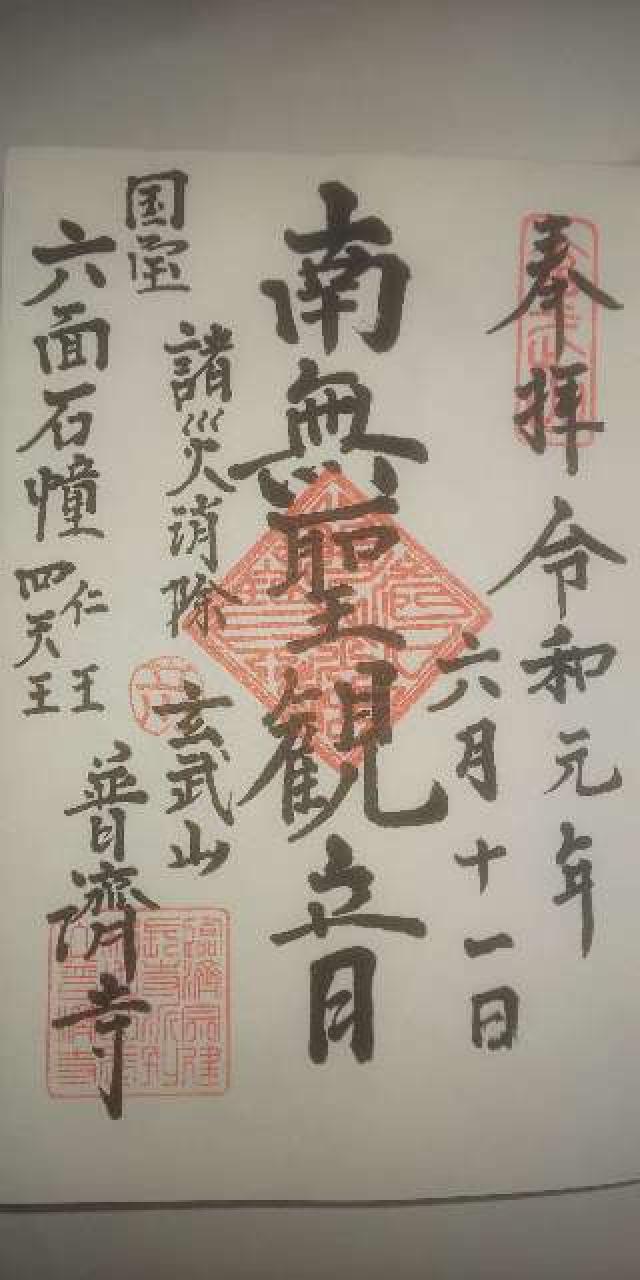 奉拝
令和元年
六月十一日
南無聖観立日
諸災消除
玄武山
普濟寺
国宝
六面石幢
仁王
四天王